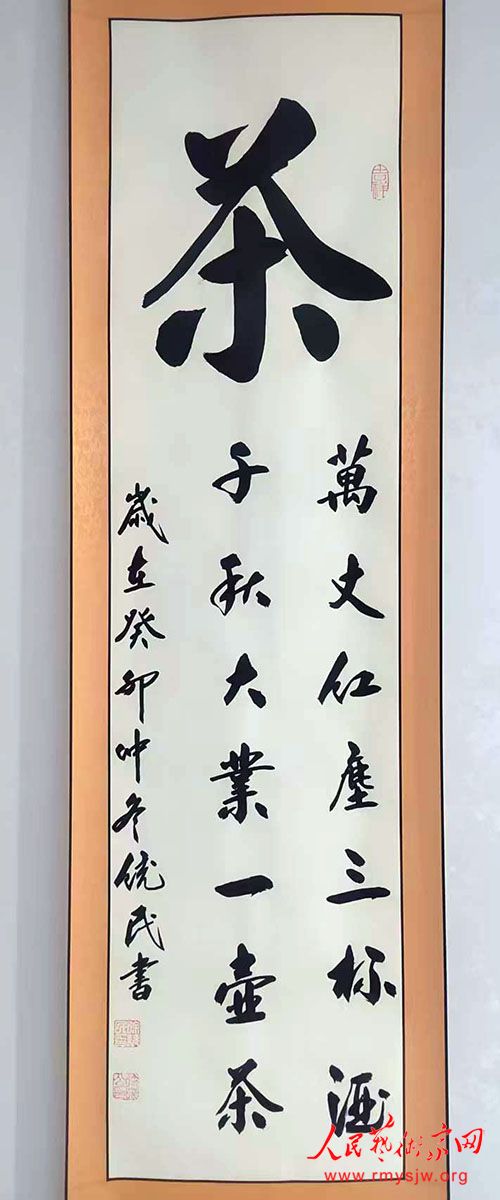 茶
萬丈红塵三杯酒
千秋大業一壺茶
歲在癸卯仲冬统民書
人民藝術家网
www.rmysjw.org